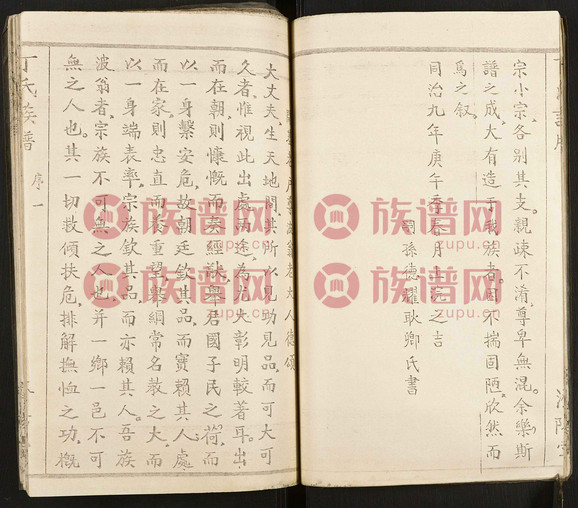 宗小宗各別其支親疎不淆尊卑無混余樂斯
譜之成大有造于我族者固不揣固陋欣然而
爲之叙
同治九年庚午季春月上浣之吉
嗣孫德耀耿卿氏書
大丈夫生天地間其所以見功見品而可大可
久者惟視此出處兩途為尤大彰明較著耳出
而在朝則慷慨而奏經猷舉君國子民之荷而
以一身繫安危故朝廷欽其品而實賴其人處
而在家則忠直而養重望舉綱常名教之大而
以一身端表率宗族欽其品而亦賴其人吾族
波翁者宗族不可無之人也并一鄉一邑不可
無之人也其一切救傾扶危排解撫恤之功概
丁氏族譜
序一
族谱网
zupu.cn
族谱网
zupu.cn
族谱网
zupu.cn
族谱网
zupu.cn